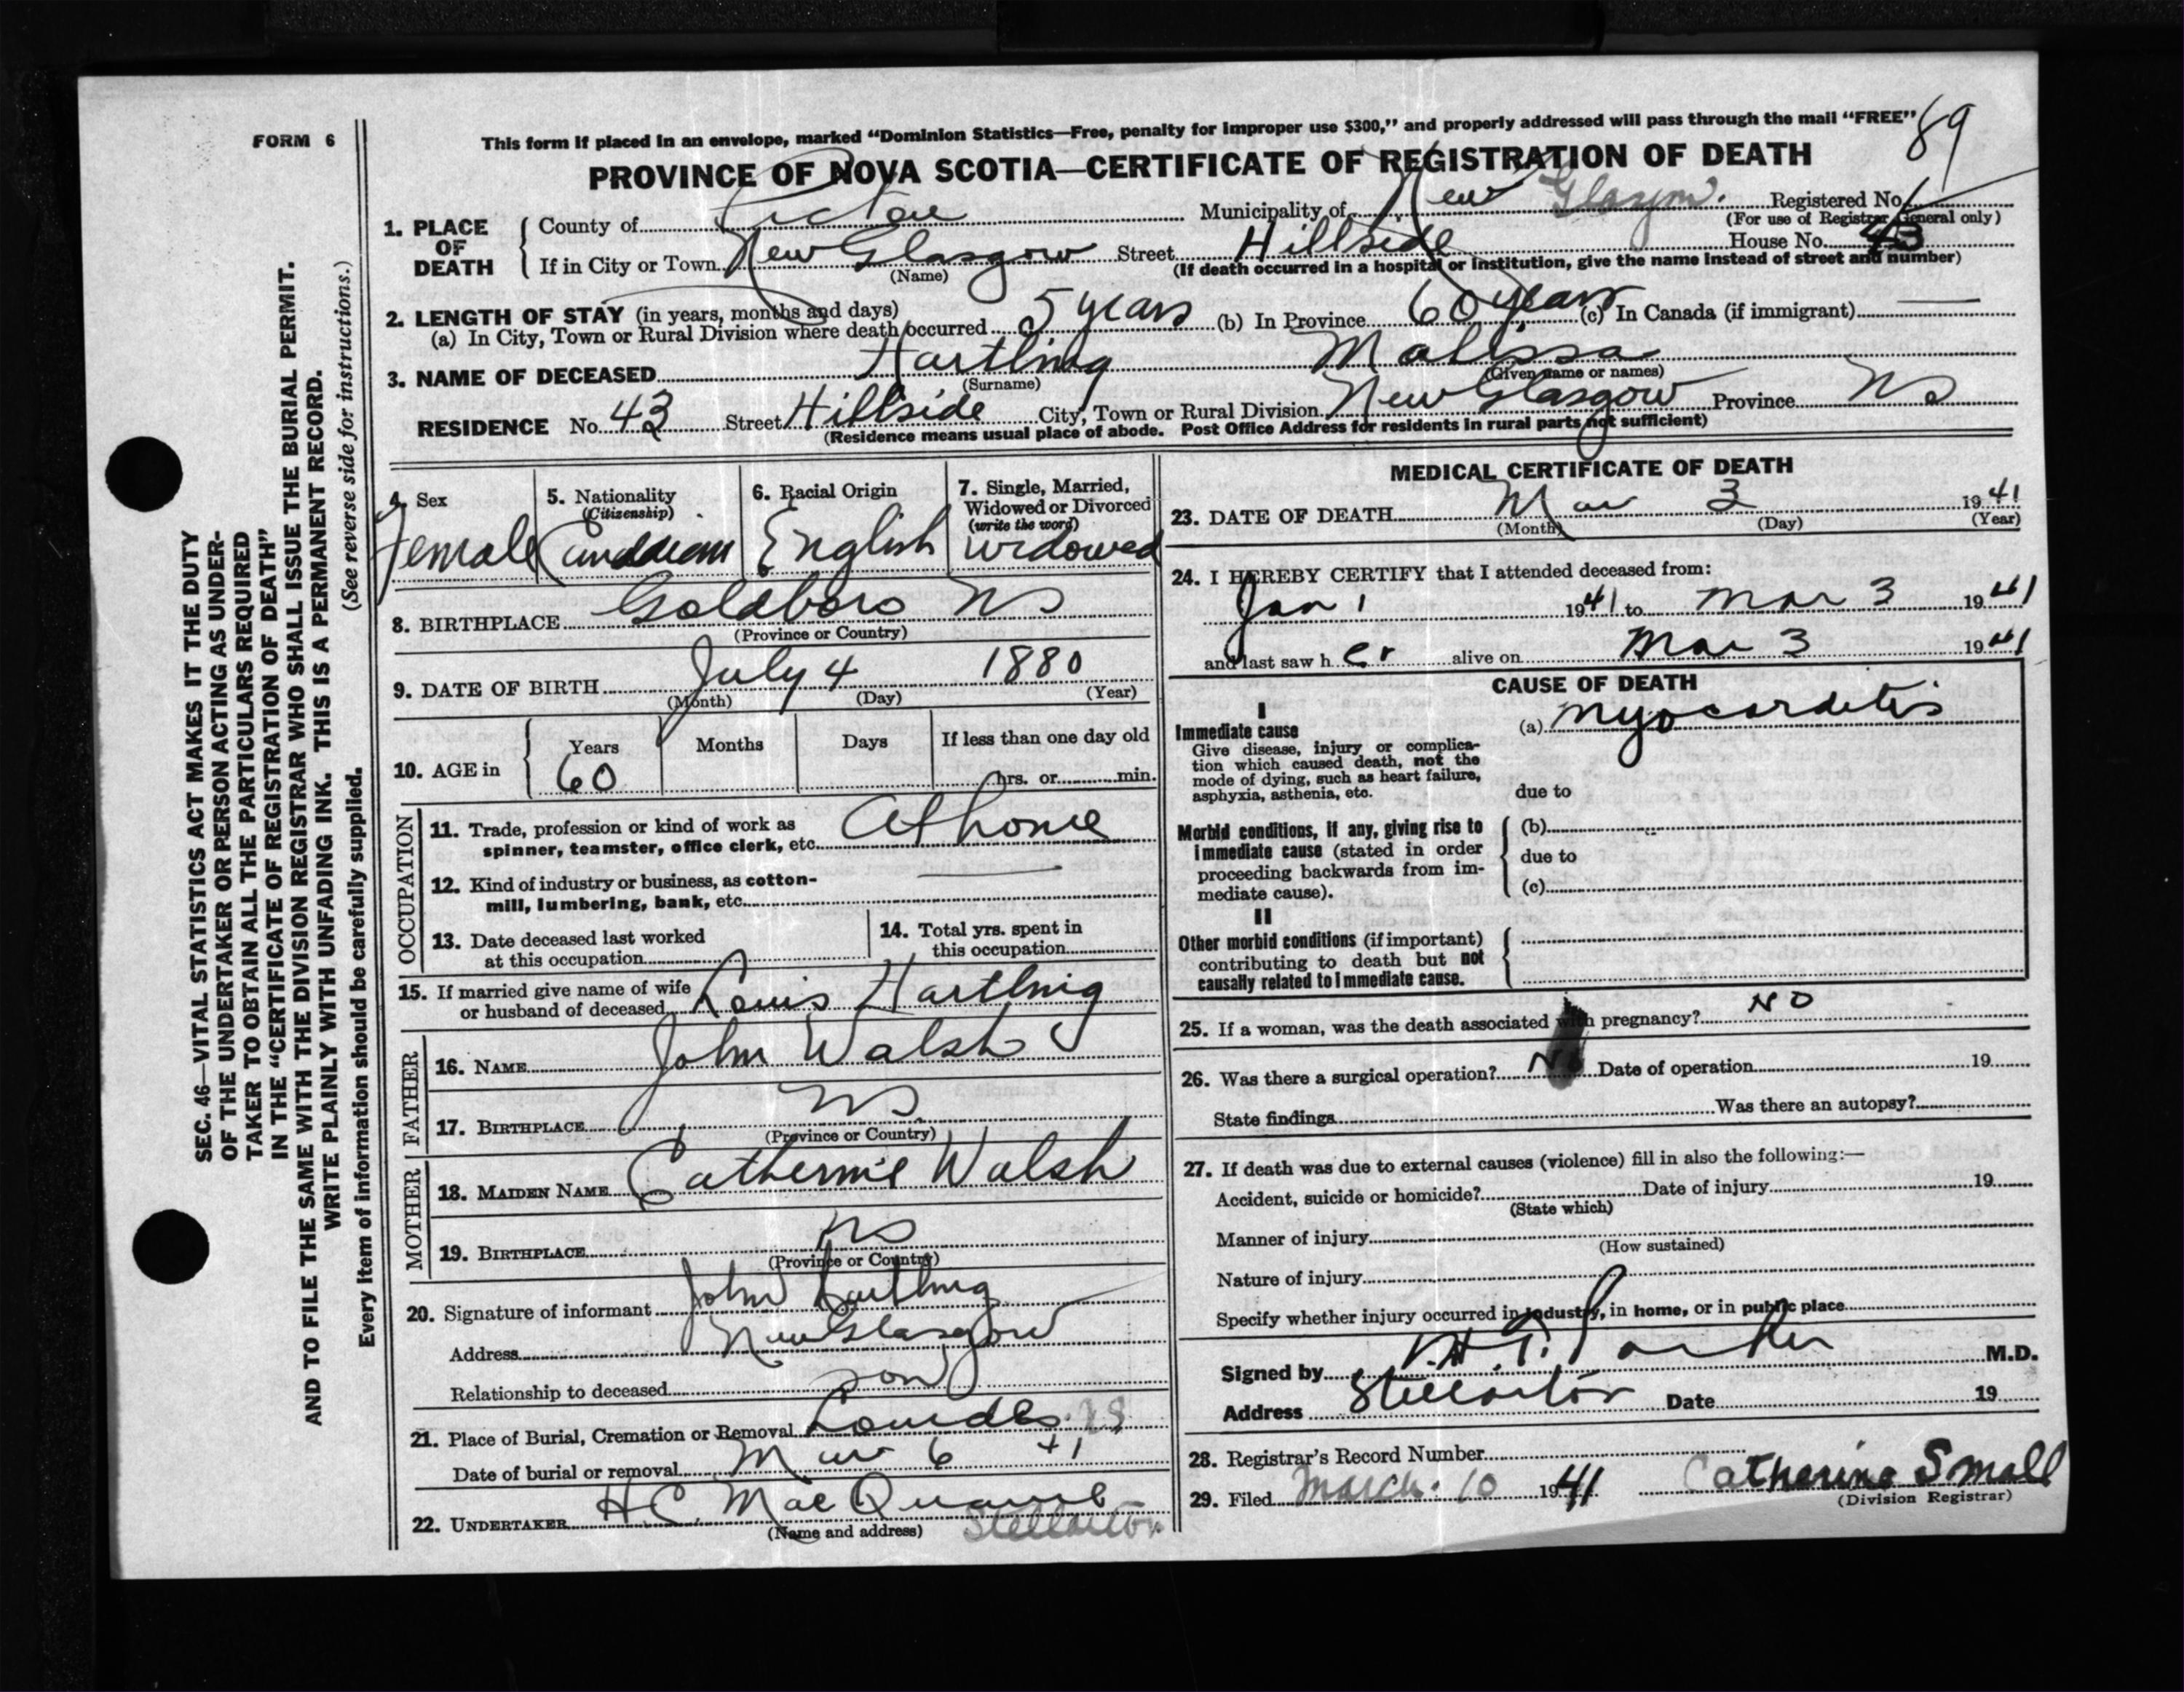 FORM 6
This form if placed in an envelope, marked “Dominion Statistics—Free, penalty for improper use $300,” and properly addressed will pass through the mail “FREE”
89
PROVINCE OF NOVA SCOTIA—CERTIFICATE OF REGISTRATION OF DEATH
1. PLACE OF DEATH
County of Pictou Municipality of New Glasgow. Registered No.
(For use of Registrar General only)
If in City or Town New Glasgow Street Hillside House No. 43
(Name) (If death occurred in a hospital or institution, give the name instead of street and number)
2. LENGTH OF STAY (in years, months and days)
(a) In City, Town or Rural Division where death occurred 5 years (b) In Province 60 years (c) In Canada (if immigrant) —
3. NAME OF DECEASED Hartling Malissa
(Surname) (Given name or names)
RESIDENCE No. 43 Street Hillside City, Town or Rural Division New Glasgow Province NS
(Residence means usual place of abode. Post Office Address for residents in rural parts not sufficient)
4. Sex Female
5. Nationality (Citizenship) Canadian
6. Racial Origin English
7. Single, Married, Widowed or Divorced (write the word) widowed
8. BIRTHPLACE Goldboro NS
(Province or Country)
9. DATE OF BIRTH July 4 1880
(Month) (Day) (Year)
10. AGE in Years 60 Months Days If less than one day old
hrs. or min.
OCCUPATION
11. Trade, profession or kind of work as
spinner, teamster, office clerk, etc. At home
12. Kind of industry or business, as cotton-
mill, lumbering, bank, etc. —
13. Date deceased last worked
at this occupation
14. Total yrs. spent in
this occupation
15. If married give name of wife
or husband of deceased Louis Hartling
FATHER
16. NAME John Walsh
17. BIRTHPLACE NS
(Province or Country)
MOTHER
18. MAIDEN NAME Catherine Walsh
19. BIRTHPLACE NS
(Province or Country)
20. Signature of informant John Hartling
Address New Glasgow
Relationship to deceased son
21. Place of Burial, Cremation or Removal Lourdes NS
Date of burial or removal Mar 6 41
22. UNDERTAKER H.C. MacQuarrie Stellarton
(Name and address)
MEDICAL CERTIFICATE OF DEATH
23. DATE OF DEATH Mar 3 1941
(Month) (Day) (Year)
24. I HEREBY CERTIFY that I attended deceased from:
Jan 1 1941 to Mar 3 1941
and last saw her alive on Mar 3 1941
CAUSE OF DEATH
I
Immediate cause
Give disease, injury or complica-
tion which caused death, not the
mode of dying, such as heart failure,
asphyxia, asthenia, etc.
(a) Myocarditis
due to
Morbid conditions, if any, giving rise to
immediate cause (stated in order
proceeding backwards from im-
mediate cause).
(b)
due to
(c)
II
Other morbid conditions (if important)
contributing to death but not
causally related to immediate cause.
25. If a woman, was the death associated with pregnancy? NO
26. Was there a surgical operation? No Date of operation 19
State findings Was there an autopsy?
27. If death was due to external causes (violence) fill in also the following:—
Accident, suicide or homicide? Date of injury 19
(State which)
Manner of injury
(How sustained)
Nature of injury
Specify whether injury occurred in industry, in home, or in public place
Signed by Parker M.D.
Address Stellarton Date 19
28. Registrar's Record Number
29. Filed March. 10 1941 Catherine Small
(Division Registrar)
SEC. 46—VITAL STATISTICS ACT MAKES IT THE DUTY
OF THE UNDERTAKER OR PERSON ACTING AS UNDER-
TAKER TO OBTAIN ALL THE PARTICULARS REQUIRED
IN THE “CERTIFICATE OF REGISTRATION OF DEATH”
AND TO FILE THE SAME WITH THE DIVISION REGISTRAR WHO SHALL ISSUE THE BURIAL PERMIT.
WRITE PLAINLY WITH UNFADING INK. THIS IS A PERMANENT RECORD.
Every item of information should be carefully supplied. (See reverse side for instructions.)